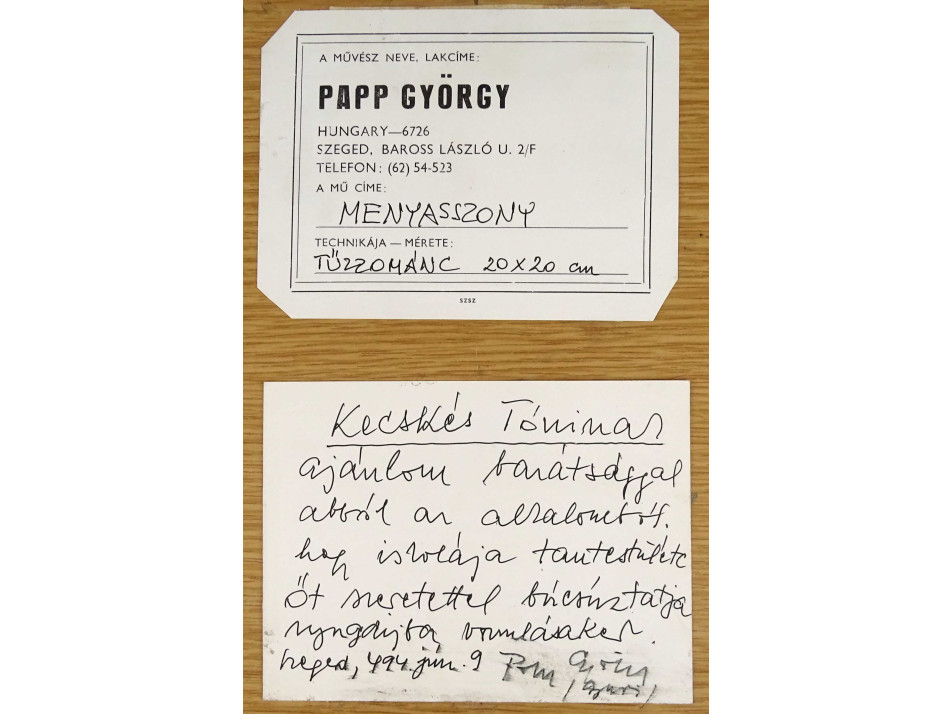 A MŰVÉSZ NEVE, LAKCÍME:
PAPP GYÖRGY
HUNGARY—6726
SZEGED, BAROSS LÁSZLÓ U. 2/F
TELEFON: (62) 54-523
A MŰ CÍME:
MENYASSZONY
TECHNIKÁJA — MÉRETE:
TŰZZOMÁNC 20X20 cm
SZSZ
Kecskés Tóninak
ajánlom barátsággal
abból az alkalomból,
hogy iskolája tantestülete
Őt szeretettel búcsúztatja
nyugdíjba vonulásakor.
Szeged, 994. jún. 9 Papp György
/Gyuri/